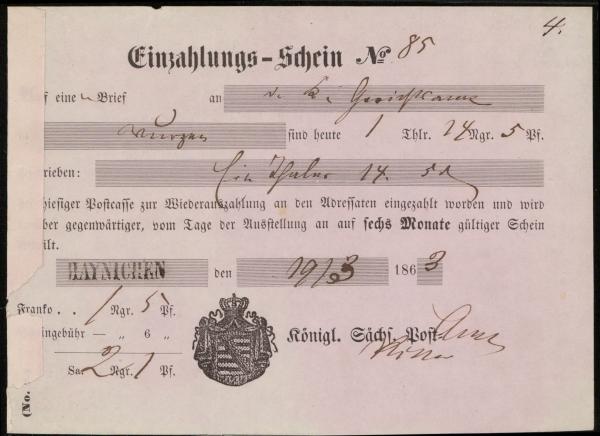 4.
Einzahlungs-Schein No 85
f eine n Brief an d. K. Gerichtsamt
Wurzen sind heute 1 Thlr. 14 Ngr. 5 Pf.
rieben: Ein Thaler 14. 5 d
hiesiger Postcasse zur Wiederauszahlung an den Adressaten eingezahlt worden und wird
ber gegenwärtiger, vom Tage der Ausstellung an auf sechs Monate gültiger Schein
ilt.
HAYNICHEN den 19/3 1863
Franko . . 1 Ngr. 5 Pf.
ingebühr — „ 6 „
Sa. 2 Ngr. 1 Pf.
Königl. Sächs. Post
(No.